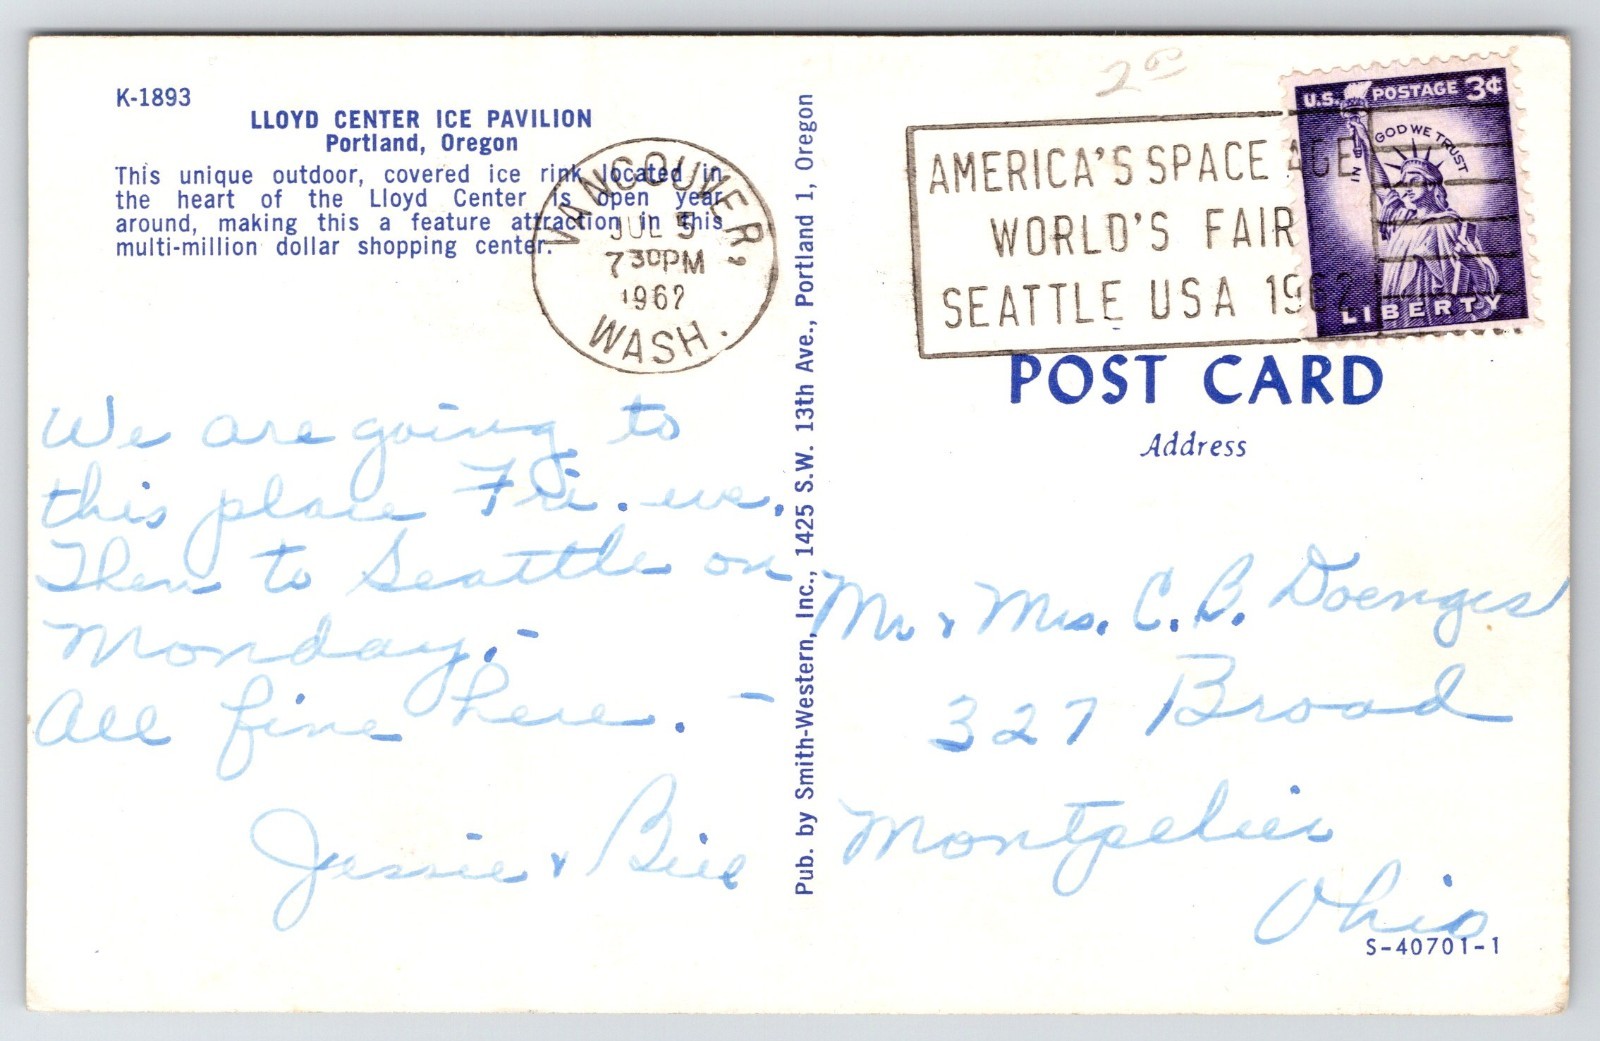 K-1893
LLOYD CENTER ICE PAVILION
Portland, Oregon
This unique outdoor, covered ice rink located in
the heart of the Lloyd Center is open year
around, making this a feature attraction in this
multi-million dollar shopping center.
VANCOUVER,
JUL 5
730PM
1962
WASH.
We are going to
this place Fri. eve.
Then to Seattle on
Monday.-
All fine here. -
Jessie & Bill
Pub. by Smith-Western, Inc., 1425 S.W. 13th Ave., Portland 1, Oregon
2 00
AMERICA'S SPACE AGE
WORLD'S FAIR
SEATTLE USA 1962
U.S. POSTAGE 3¢
IN GOD WE TRUST
LIBERTY
POST CARD
Address
Mr & Mrs. C. B. Doenges
327 Broad
Montpelier
Ohio
S-40701-1